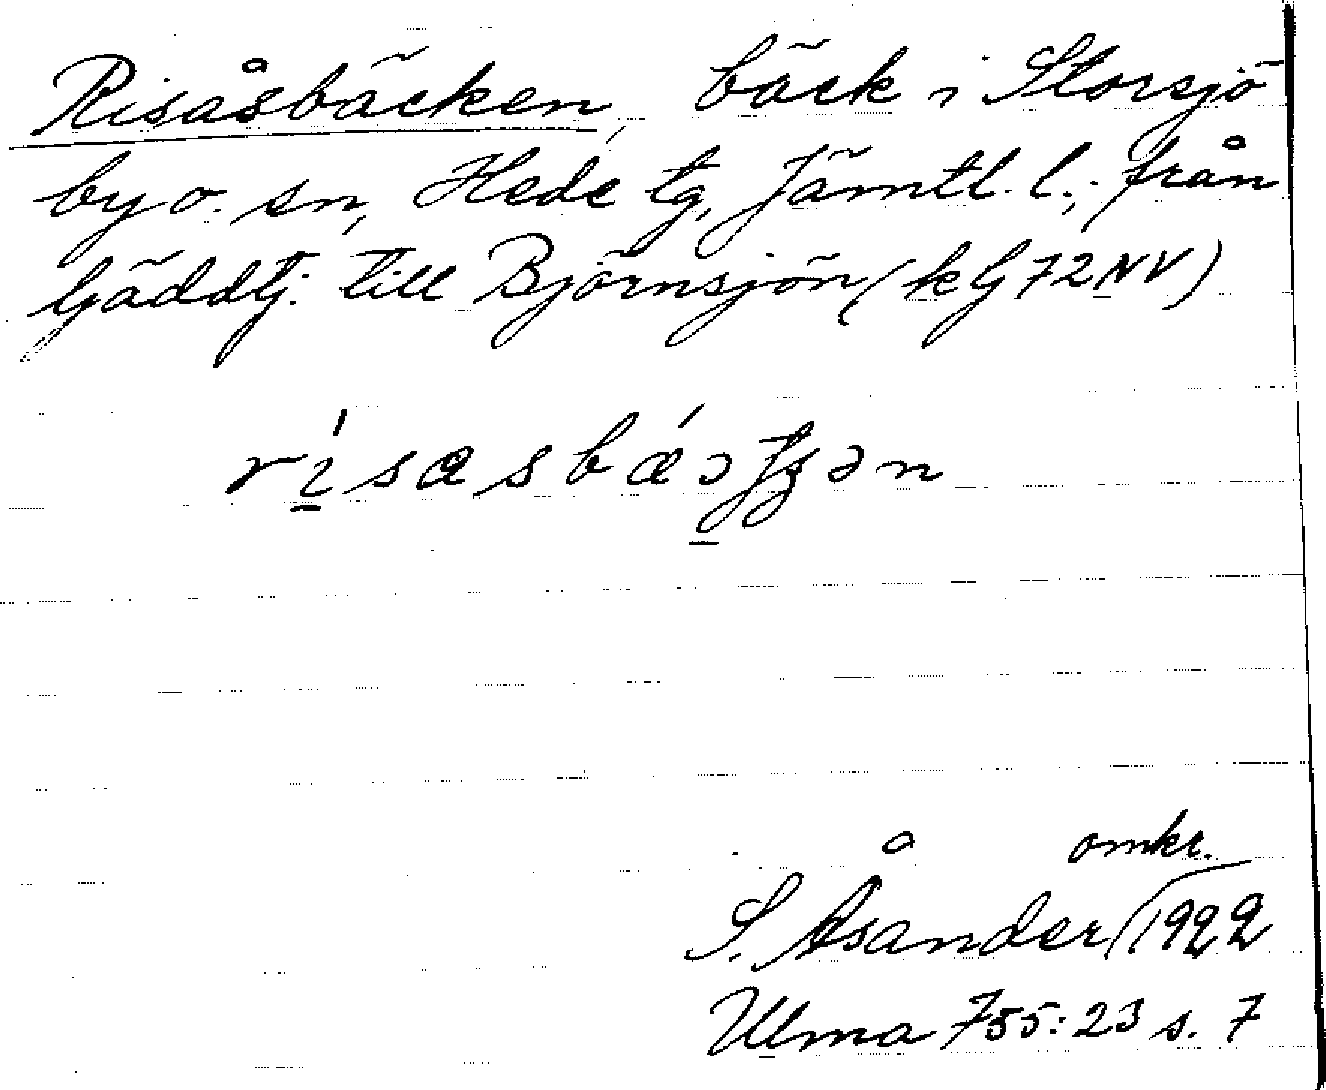 Risåsbäcken, bäck i Storsjö
by o. sn, Hede tg, Jämtl. l.; från
Gäddtj. till Björnsjön (kG72NV)
omkr.
S. Åsander 1922
Ulma 755:23 s. 7